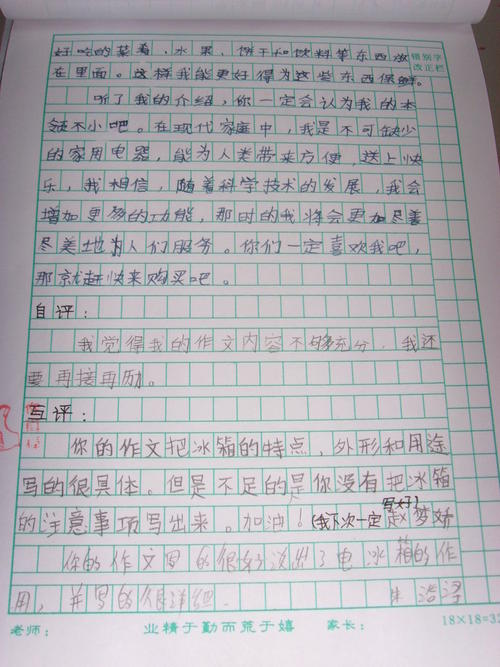 好吃的菜肴、水果、饼干和饮料等东西放
在里面。这样我能更好得为这些东西保鲜。
错别字
改正栏
听了我的介绍，你一定会认为我的本
领不小吧。在现代家庭中，我是不可缺少
的家用电器，能为人类带来方便，送上快
乐，我相信，随着科学技术的发展，我会
增加更多的功能，那时的我将会更加尽善
尽美地为人们服务。你们一定喜欢我吧，
那就赶快来购买吧。
自评：
我觉得我的作文内容不够充分，我还
要再接再励。
互评：
你的作文把冰箱的特点，外形和用途
写的很具体。但是不足的是你没有把冰箱
的注意事项写出来。加油！(我下次一定写好)
你的作文写的很好 出了电冰箱的作
用，并写的很详细。
老师： 业精于勤而荒于嬉 家长： 18×18=32